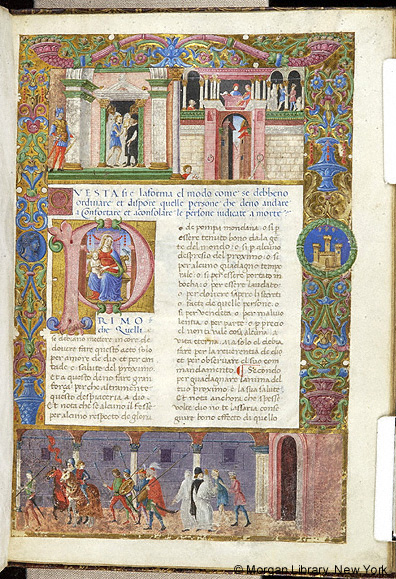 QVESTA si e la forma el modo come se debbeno
ordinare et dispore quelle persone che deno andare
a confortare et aconsolare le persone iudicate a morte
PRIMO
che Quelli
se debiano mettere in core de
douero fare questo acto solo
per amore de dio et per cin
tade e salute del proximo
Et a questo deno fare gran
forza per che altramente
questo despaceria a dio
Et nota che se alcuno il fesse
per alcuno respecto de gloria
o de pompa mondana o si p
essere tenuto bono da la ge
te del mondo o si p alcuno
despreso del proximo o si
per alcuno guadagno tempo
rale o si per essere portato in
bocha o per essere laudato
o per douere sapere li secreti
o facte de quelle persone o
si per vendeta o per maliuo
lentia o per parte o p precio
el non ci uale cosa alcuna a
uita eterna Ma solo el deba
fare per la reuerentia de dio
et per obseruare il suo com
mandamento Secondo
per guadagnare lanima del
tuo proximo e la sua salute
Et nota anchora che spesse
volte dio no te lassaria conse
guire bono effecto di quello
© Morgan Library, New York